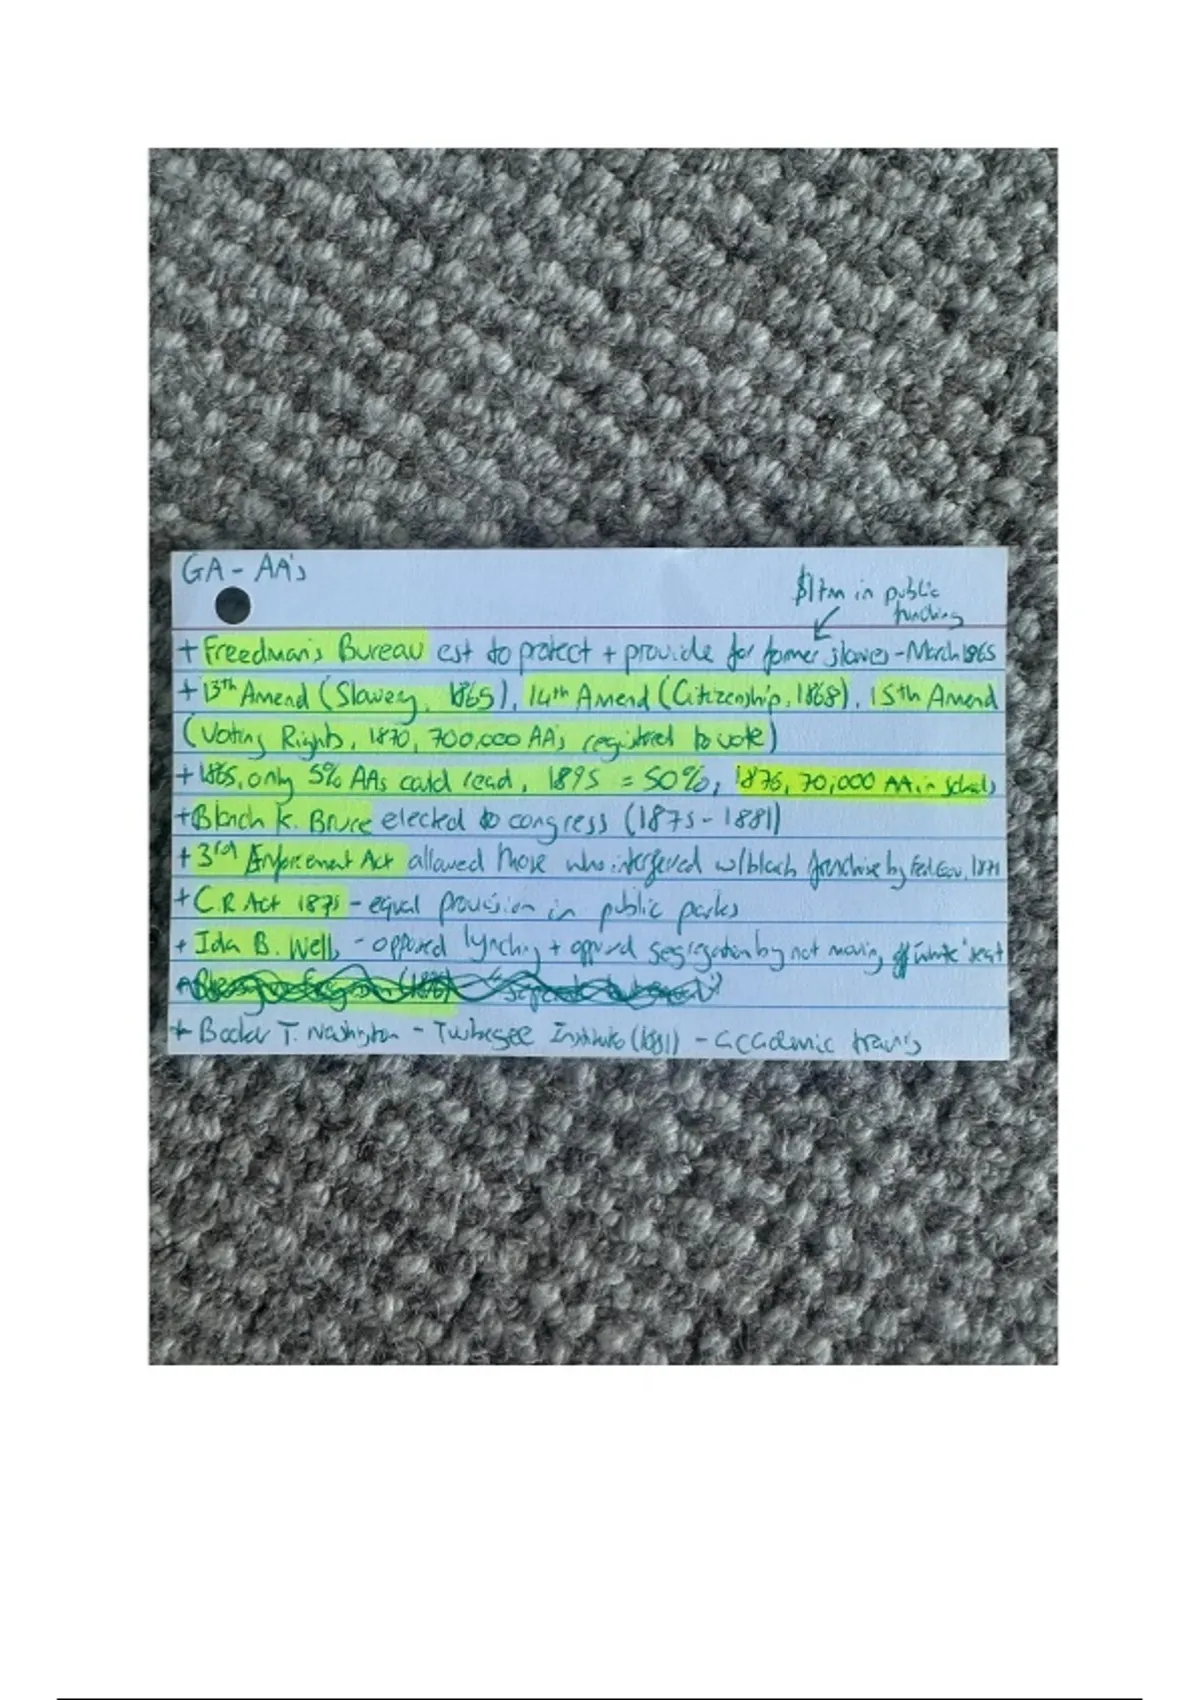 GA - AA's
$17m in public
funding
+ Freedman's Bureau est to protect + provide for former slaves - March 1865
+ 13th Amend (Slavery, 1865), 14th Amend (Citizenship, 1868), 15th Amend
(Voting Rights, 1870, 700,000 AA's registered to vote)
+ 1865, only 5% AAs could read, 1895 = 50%, 1876, 70,000 AA in schools
+ Blanch K. Bruce elected to congress (1875 - 1881)
+ 3rd Enforcement Act allowed those who interfered w/ black franchise by Fed. Gov, 1871
+ C.R Act 1875 - equal provision in public parks
+ Ida B. Wells - opposed lynching + opposed segregation by not moving off 'white' seat
+ Booker T. Washington - Tuskegee Institute (1881) - academic